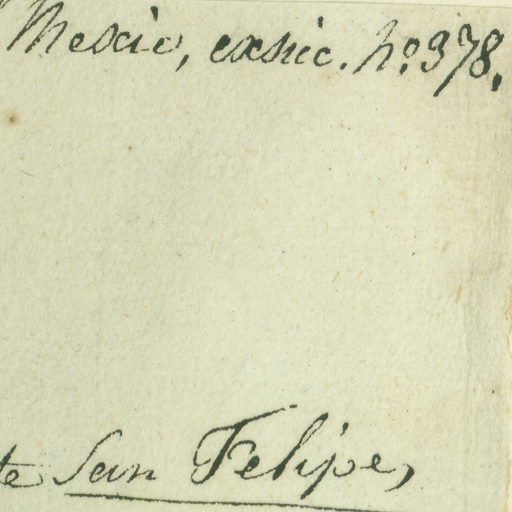 Mexico, exsicc. No. 378.
te San Felipe,